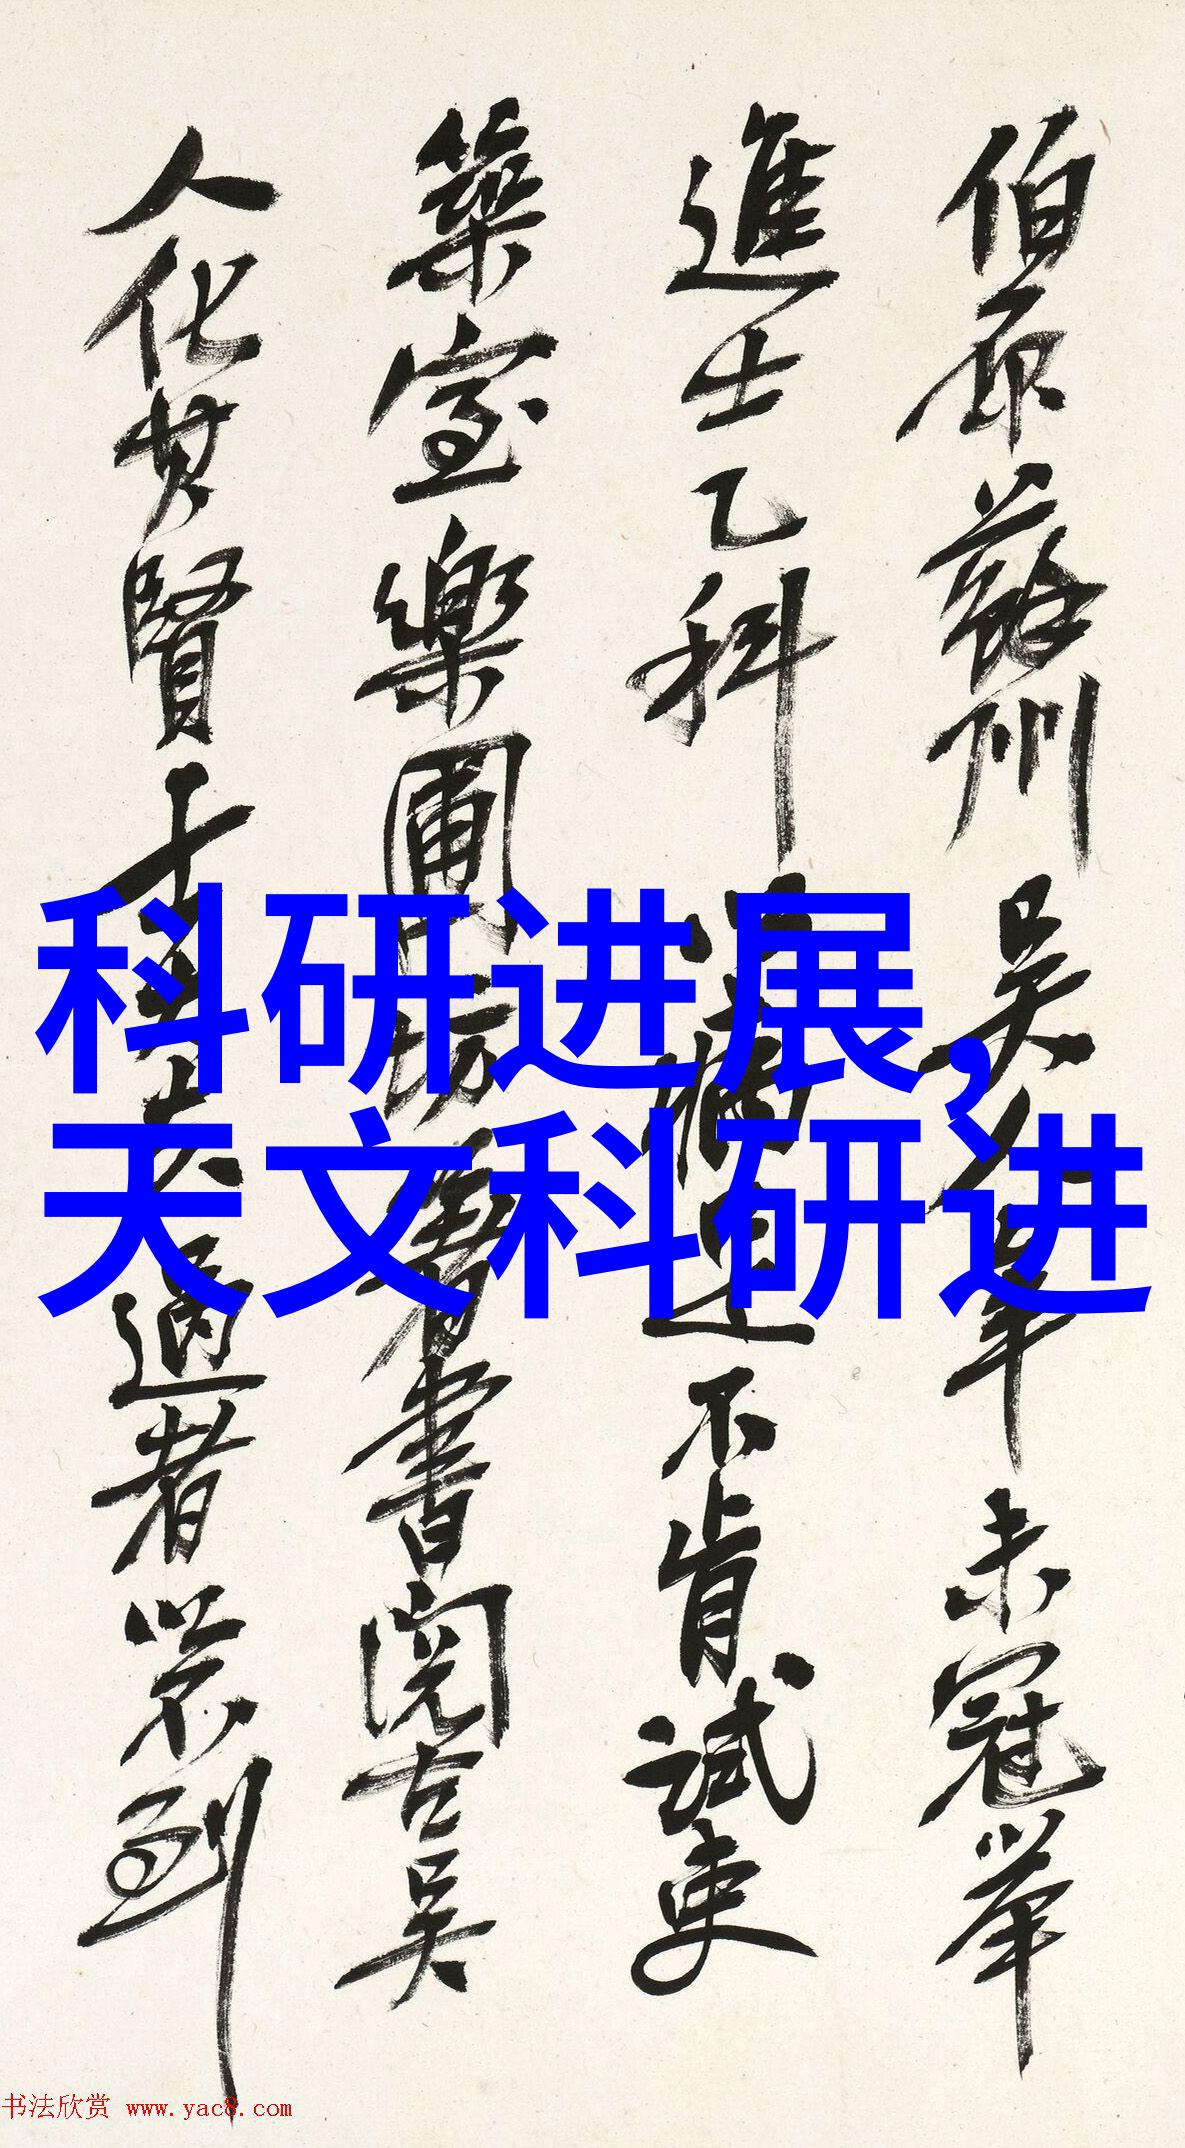 伯原蘇州吴人舉未冠舉
進士乙科以病足不肯試吏
築室樂圃坊著書閱古吴
人化其賢士大夫過者必
科研进展,
天文科研进
书法欣赏 www.yac8.com